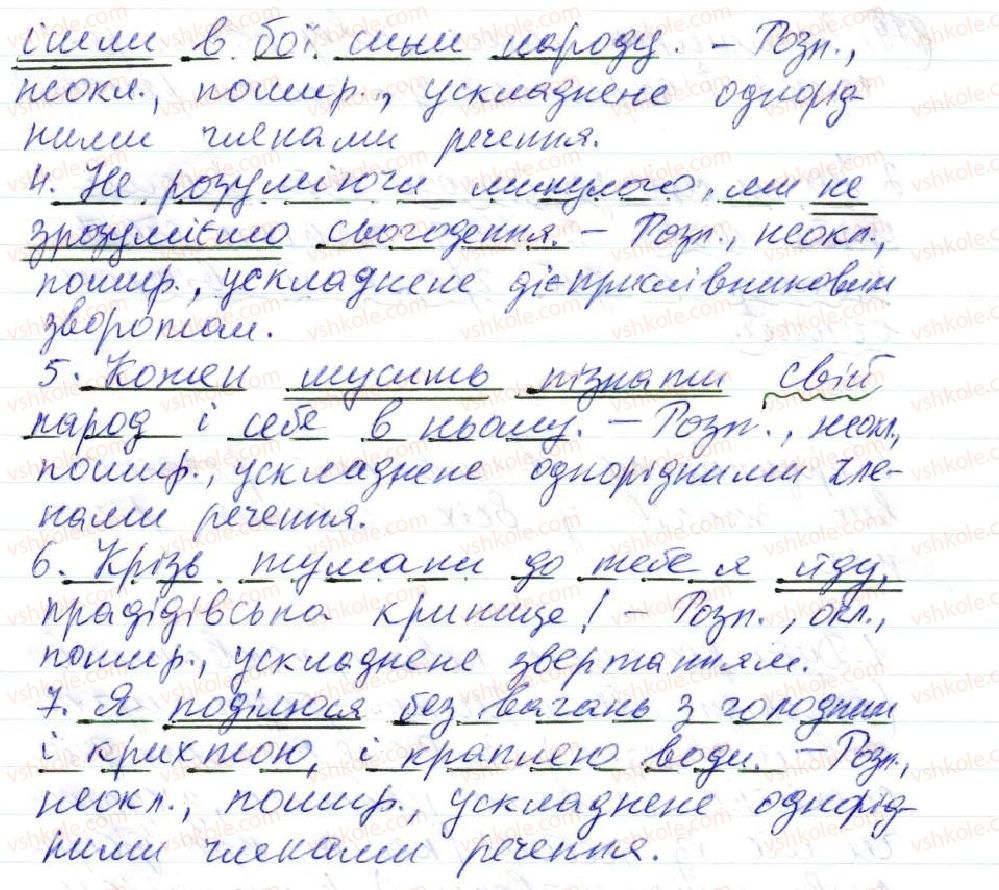 ішли в бої сини народу. – Розп.,
неокл., пошир., ускладнене однорід-
ними членами речення.
4. Не розуміючи минулого, ми не
зрозуміємо сьогодення. – Розп., неокл.,
пошир., ускладнене дієприслівниковим
зворотом.
5. Кожен мусить пізнати свій
народ і себе в ньому. – Розп., неокл.,
пошир., ускладнене однорідними чле-
нами речення.
6. Крізь тумани до тебе я йду,
прадідівська кринице! – Розп., окл.,
пошир., ускладнене звертанням.
7. Я поділюся без вагань з голодним
і крихтою, і краплею води. – Розп.,
неокл., пошир., ускладнене однорід-
ними членами речення.